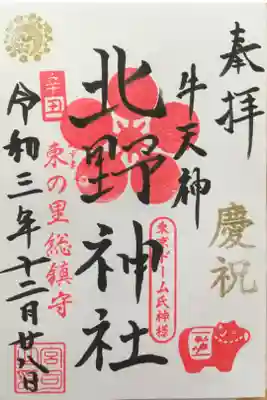 奉拝
慶祝
牛天神
東京ドーム氏神様
北野神社
辛丑
東の里総鎮守
令和三年十二月廿八日